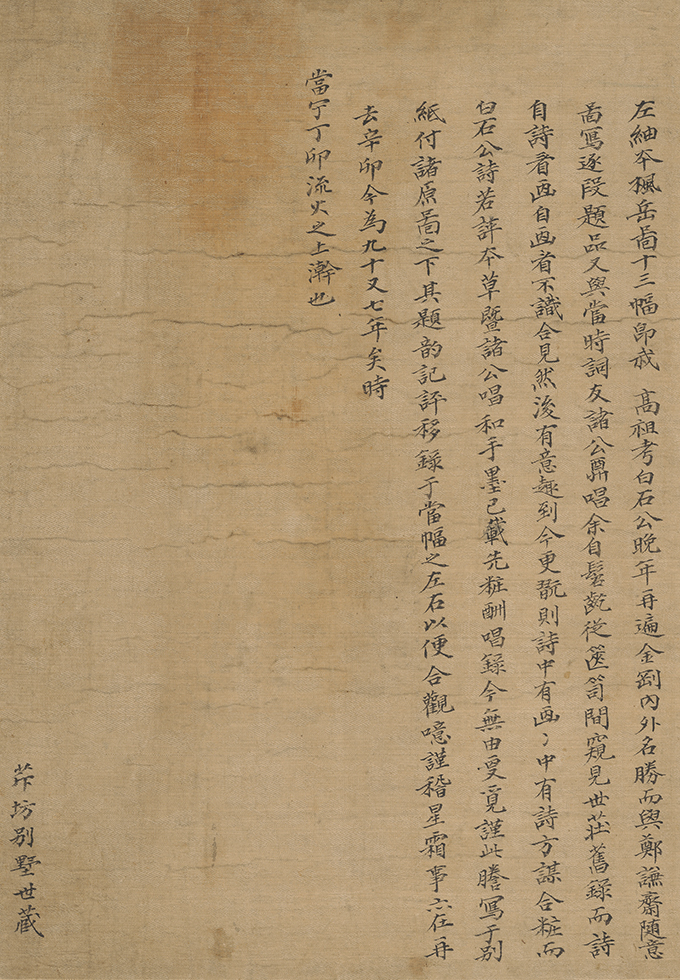 左紬本楓岳啚十三幅卽我 高祖考白石公晚年再遍金剛內外名勝而與鄭謙齋随意
啚寫逐段題品又與當時詞友諸公賡唱余自髫齔從篋笥間窺見世莊舊錄而詩
自詩看画自画看不識合見然後有意趣到今更翫則詩中有画〻中有詩方謀合粧而
白石公詩若評本草曁諸公唱和手墨已載先粧酬唱錄今無由更覓謹此謄寫于別
紙付諸原啚之下其題韵記評移錄于當幅之左右以便合觀噫謹稽星霜事六在再
去辛卯今為九十又七年矣時
當宁丁卯流火之上澣也
芹坊別墅世藏